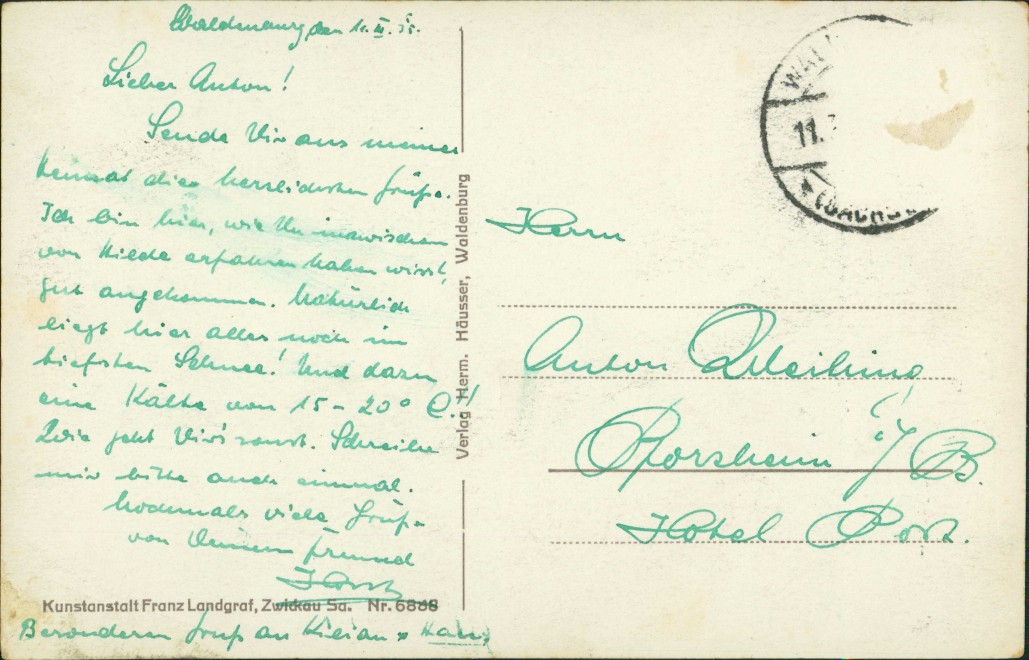 Waldenburg, den 11. III. 35.
Lieber Anton!
Sende Dir aus meiner
Heimat die herzlichsten Grüße.
Ich bin hier, wie Du inzwischen
von Hilde erfahren haben wirst,
gut angekommen. Natürlich
liegt hier alles noch im
tiefsten Schnee! Und dazu
eine Kälte von 15-20° C.!!
Wie geht Dir's sonst. Schreibe
mir bitte auch einmal.
Nochmals viele Grüße
von Deinem Freund
Horst
Kunstanstalt Franz Landgraf, Zwickau Sa. Nr. 6888
Besonderen Gruß an Kilian
Verlag Herm. Häusser, Waldenburg
11.
Herrn
Anton
Pforzheim i/B.
Hotel Post.